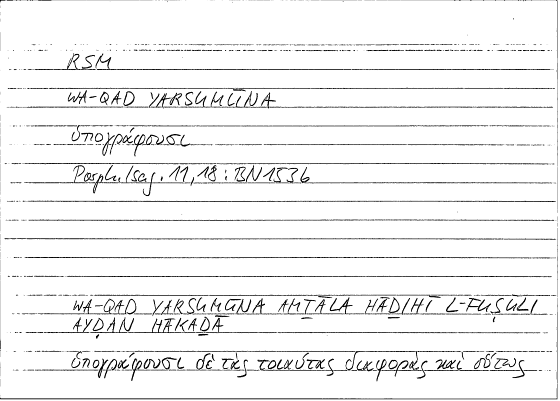 RSM
WA-QAD YARSUMŪNA
ὑπογράφουσι
Porph. Isag. 11,18: BN 1536
WA-QAD YARSUMŪNA AMṮĀLA HĀḎIHĪ L-FUṢŪLI
AYḌAN HĀKAḎĀ
ὑπογράφουσι δὲ τὰς τοιαύτας διαφορὰς καὶ οὕτως